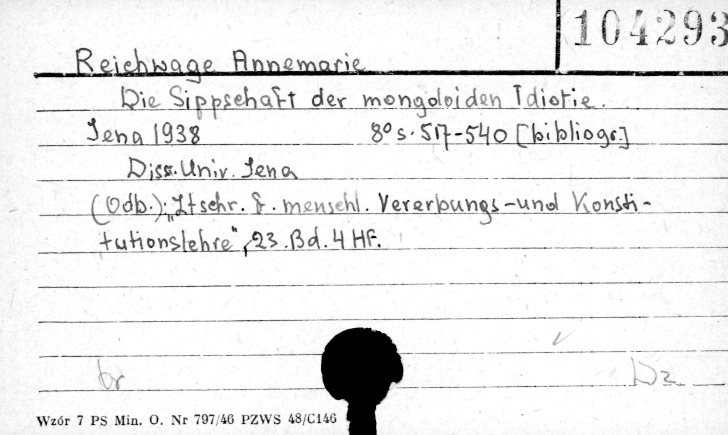 104293
Reichwage Annemarie
Die Sippschaft der mongoloiden Idiotie.
Jena 1938 8° s. 517-540 [bibliogr.]
Diss. Univ. Jena
(Odb.): „Ztschr. f. menschl. Vererbungs-und Konsti-
tutionslehre", 23. Bd. 4 Hf.
br
Dz
Wzór 7 PS Min. O. Nr 797/46 PZWS 48/C146